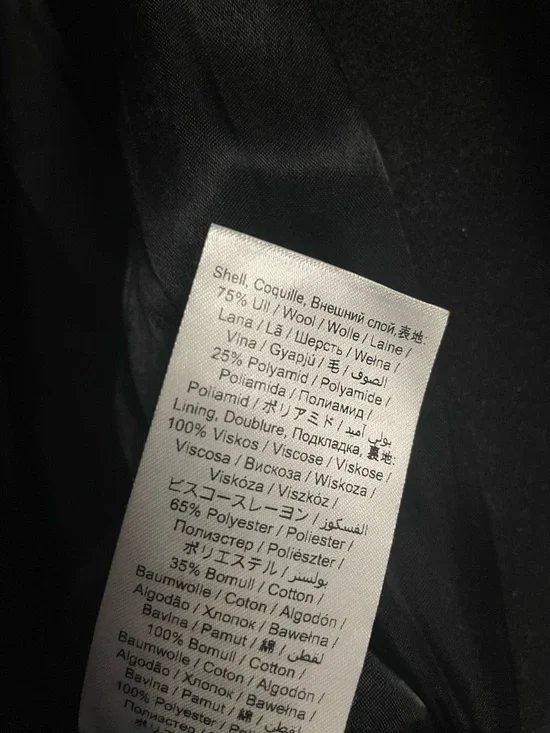 Shell, Coquille, Внешний слой, 表地:
75% Ull / Wool / Wolle / Laine /
Lana / Lã / Шерсть / Wełna /
Vlna / Gyapjú / 毛 / الصوف
25% Polyamid / Polyamide /
Poliamida / Полиамид /
Poliamid / ポリアミド / بولي أميد
Lining, Doublure, Подкладка, 裏地:
100% Viskos / Viscose / Viskose /
Viscosa / Вискоза / Wiskoza /
Viskóza / Viszkóz /
ビスコースレーヨン / الفسكوز
65% Polyester / Poliester /
Полиэстер / Poliészter /
ポリエステル / بولستر
35% Bomull / Cotton /
Baumwolle / Coton / Algodón /
Algodão / Хлопок / Bawełna /
Bavlna / Pamut / 綿 / لقطن
100% Bomull / Cotton /
Baumwolle / Coton / Algodón /
Algodão / Хлопок / Bawełna /
Bavlna / Pamut / 綿 / لقطن
100% Polyester /
Полиэстер /